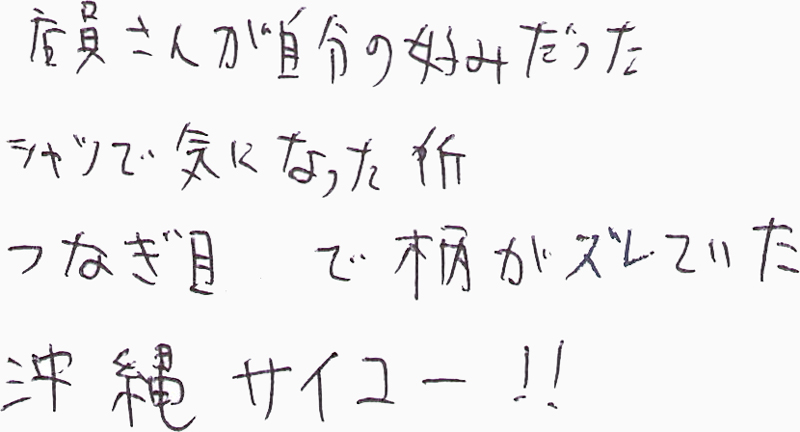 店員さんが自分の好みだった
シャツで気になった所
つなぎ目 で柄がズレていた
沖縄サイコー!!